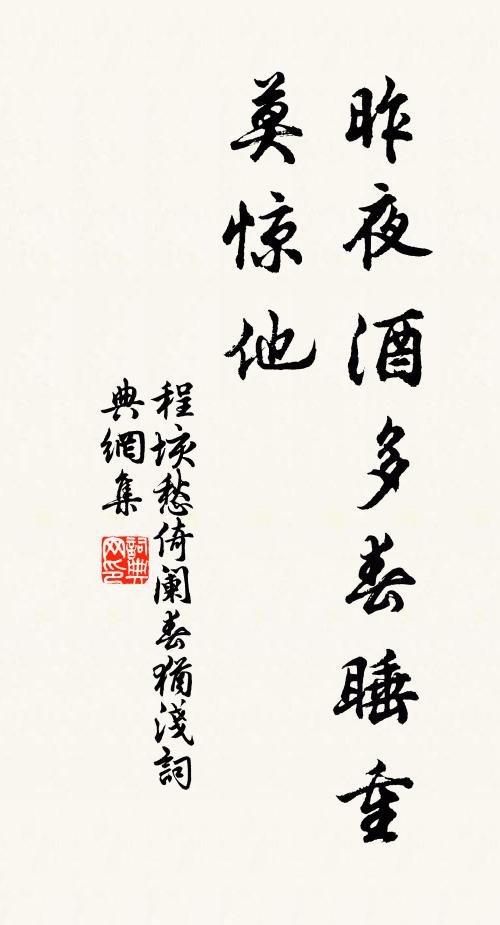 昨夜酒多春睡重
莫惊他
程垓愁倚阑春犹淺詞
典網集
詞典网印